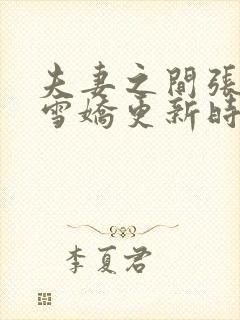 夫妻之間張
雪嬌更新時
李夏君